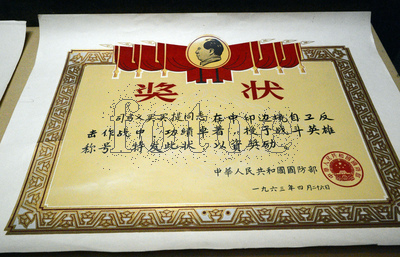 奖状
司马义买买提同志在中印边境自卫反
击作战中，功绩卓著，授予战斗英雄
称号。特发此状，以资奖励。
中華人民共和國國防部
一九六三年四月二十六日